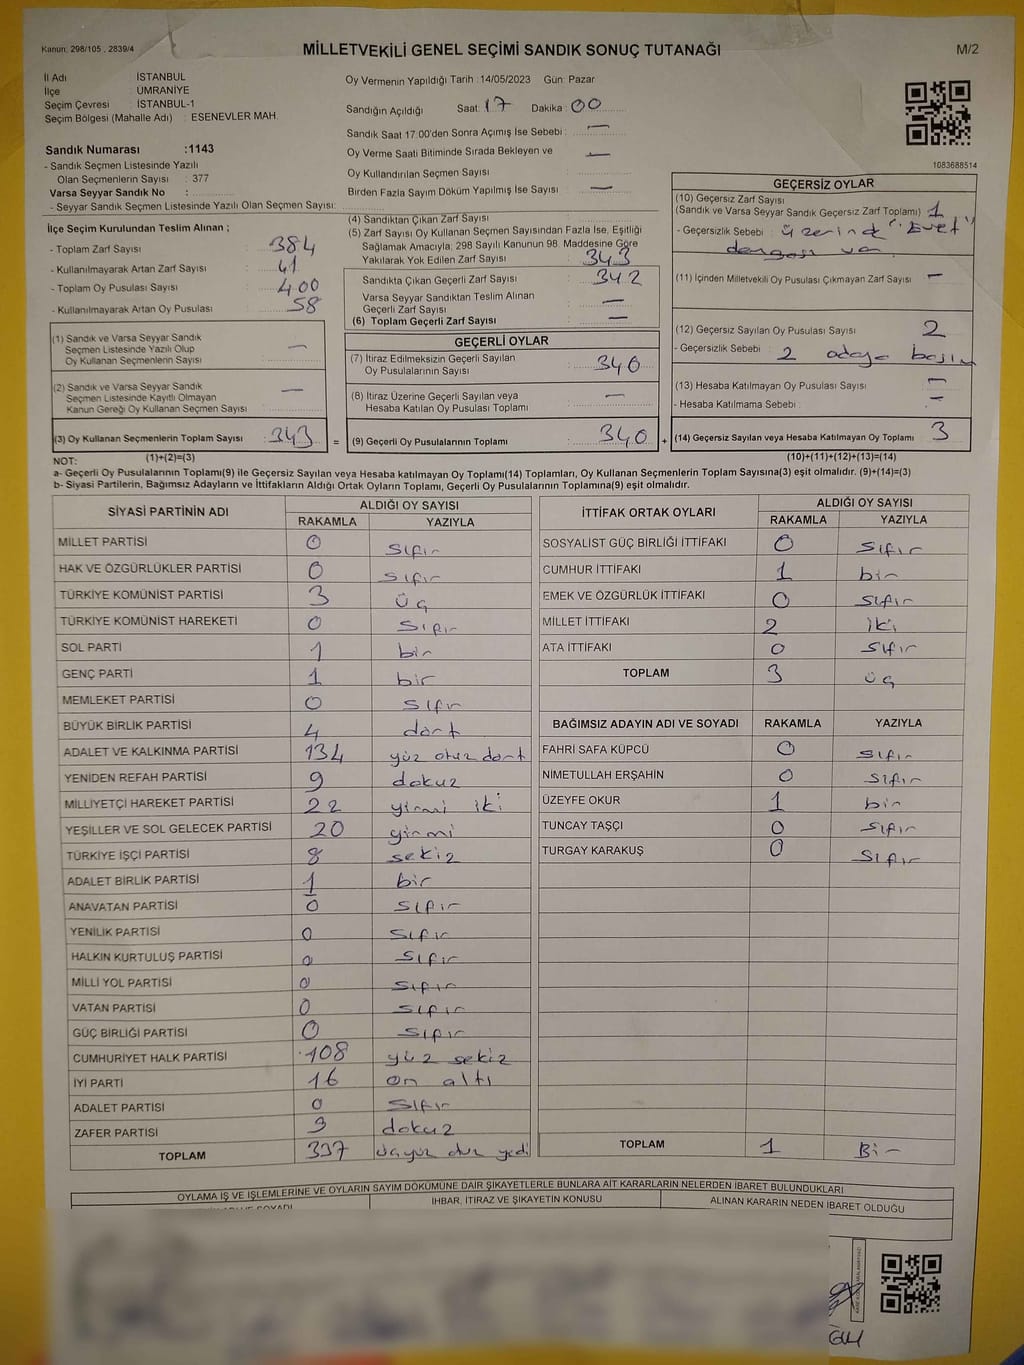 Kanun: 298/105 , 2839/4
MİLLETVEKİLİ GENEL SEÇİMİ SANDIK SONUÇ TUTANAĞI
M/2
İl Adı : İSTANBUL
İlçe : ÜMRANİYE
Seçim Çevresi : İSTANBUL-1
Seçim Bölgesi (Mahalle Adı) : ESENEVLER MAH.
Sandık Numarası :1143
- Sandık Seçmen Listesinde Yazılı
Olan Seçmenlerin Sayısı : 377
Varsa Seyyar Sandık No :
- Seyyar Sandık Seçmen Listesinde Yazılı Olan Seçmen Sayısı:
Oy Vermenin Yapıldığı Tarih :14/05/2023 Gün: Pazar
Sandığın Açıldığı Saat: 17 Dakika: 00
Sandık Saat 17:00'den Sonra Açılmış İse Sebebi : —
Oy Verme Saati Bitiminde Sırada Bekleyen ve
Oy Kullandırılan Seçmen Sayısı —
Birden Fazla Sayım Döküm Yapılmış İse Sayısı —
1083688514
İlçe Seçim Kurulundan Teslim Alınan ;
- Toplam Zarf Sayısı : 384
- Kullanılmayarak Artan Zarf Sayısı : 41
- Toplam Oy Pusulası Sayısı : 400
- Kullanılmayarak Artan Oy Pusulası : 58
(1) Sandık ve Varsa Seyyar Sandık
Seçmen Listesinde Yazılı Olup
Oy Kullanan Seçmenlerin Sayısı : —
(2) Sandık ve Varsa Seyyar Sandık
Seçmen Listesinde Kayıtlı Olmayan
Kanun Gereği Oy Kullanan Seçmen Sayısı : —
(3) Oy Kullanan Seçmenlerin Toplam Sayısı : 343
(4) Sandıktan Çıkan Zarf Sayısı :
(5) Zarf Sayısı Oy Kullanan Seçmen Sayısından Fazla İse, Eşitliği
Sağlamak Amacıyla; 298 Sayılı Kanunun 98. Maddesine Göre
Yakılarak Yok Edilen Zarf Sayısı : 343
Sandıkta Çıkan Geçerli Zarf Sayısı : 342
Varsa Seyyar Sandıktan Teslim Alınan
Geçerli Zarf Sayısı : —
(6) Toplam Geçerli Zarf Sayısı : —
GEÇERLİ OYLAR
(7) İtiraz Edilmeksizin Geçerli Sayılan
Oy Pusulalarının Sayısı : 340
(8) İtiraz Üzerine Geçerli Sayılan veya
Hesaba Katılan Oy Pusulası Toplamı : —
= (9) Geçerli Oy Pusulalarının Toplamı : 340
GEÇERSİZ OYLAR
(10) Geçersiz Zarf Sayısı
(Sandık ve Varsa Seyyar Sandık Geçersiz Zarf Toplamı) : 1
- Geçersizlik Sebebi : üzerinde "Evet"
damgası var
(11) İçinden Milletvekili Oy Pusulası Çıkmayan Zarf Sayısı : —
(12) Geçersiz Sayılan Oy Pusulası Sayısı : 2
- Geçersizlik Sebebi : 2 adaya basım
(13) Hesaba Katılmayan Oy Pusulası Sayısı : —
- Hesaba Katılmama Sebebi : —
+ (14) Geçersiz Sayılan veya Hesaba Katılmayan Oy Toplamı : 3
NOT: (1)+(2)=(3)
(10)+(11)+(12)+(13)=(14)
a- Geçerli Oy Pusulalarının Toplamı(9) ile Geçersiz Sayılan veya Hesaba katılmayan Oy Toplamı(14) Toplamları, Oy Kullanan Seçmenlerin Toplam Sayısına(3) eşit olmalıdır. (9)+(14)=(3)
b- Siyasi Partilerin, Bağımsız Adayların ve İttifakların Aldığı Ortak Oyların Toplamı, Geçerli Oy Pusulalarının Toplamına(9) eşit olmalıdır.
SİYASİ PARTİNİN ADI ALDIĞI OY SAYISI
RAKAMLA YAZIYLA
MİLLET PARTİSİ 0 sıfır
HAK VE ÖZGÜRLÜKLER PARTİSİ 0 sıfır
TÜRKİYE KOMÜNİST PARTİSİ 3 üç
TÜRKİYE KOMÜNİST HAREKETİ 0 sıfır
SOL PARTİ 1 bir
GENÇ PARTİ 1 bir
MEMLEKET PARTİSİ 0 sıfır
BÜYÜK BİRLİK PARTİSİ 4 dört
ADALET VE KALKINMA PARTİSİ 134 yüz otuz dört
YENİDEN REFAH PARTİSİ 9 dokuz
MİLLİYETÇİ HAREKET PARTİSİ 22 yirmi iki
YEŞİLLER VE SOL GELECEK PARTİSİ 20 yirmi
TÜRKİYE İŞÇİ PARTİSİ 8 sekiz
ADALET BİRLİK PARTİSİ 1 bir
ANAVATAN PARTİSİ 0 sıfır
YENİLİK PARTİSİ 0 sıfır
HALKIN KURTULUŞ PARTİSİ 0 sıfır
MİLLİ YOL PARTİSİ 0 sıfır
VATAN PARTİSİ 0 sıfır
GÜÇ BİRLİĞİ PARTİSİ 0 sıfır
CUMHURİYET HALK PARTİSİ 108 yüz sekiz
İYİ PARTİ 16 on altı
ADALET PARTİSİ 0 sıfır
ZAFER PARTİSİ 9 dokuz
TOPLAM 337 üçyüz otuz yedi
İTTİFAK ORTAK OYLARI ALDIĞI OY SAYISI
RAKAMLA YAZIYLA
SOSYALİST GÜÇ BİRLİĞİ İTTİFAKI 0 sıfır
CUMHUR İTTİFAKI 1 bir
EMEK VE ÖZGÜRLÜK İTTİFAKI 0 sıfır
MİLLET İTTİFAKI 2 iki
ATA İTTİFAKI 0 sıfır
TOPLAM 3 üç
BAĞIMSIZ ADAYIN ADI VE SOYADI RAKAMLA YAZIYLA
FAHRİ SAFA KÜPCÜ 0 sıfır
NİMETULLAH ERŞAHİN 0 sıfır
ÜZEYFE OKUR 1 bir
TUNCAY TAŞÇI 0 sıfır
TURGAY KARAKUŞ 0 sıfır
TOPLAM 1 Bir
OYLAMA İŞ VE İŞLEMLERİNE VE OYLARIN SAYIM DÖKÜMÜNE DAİR ŞİKAYETLERLE BUNLARA AİT KARARLARIN NELERDEN İBARET BULUNDUKLARI
İHBAR, İTİRAZ VE ŞİKAYETİN KONUSU
ALINAN KARARIN NEDEN İBARET OLDUĞU